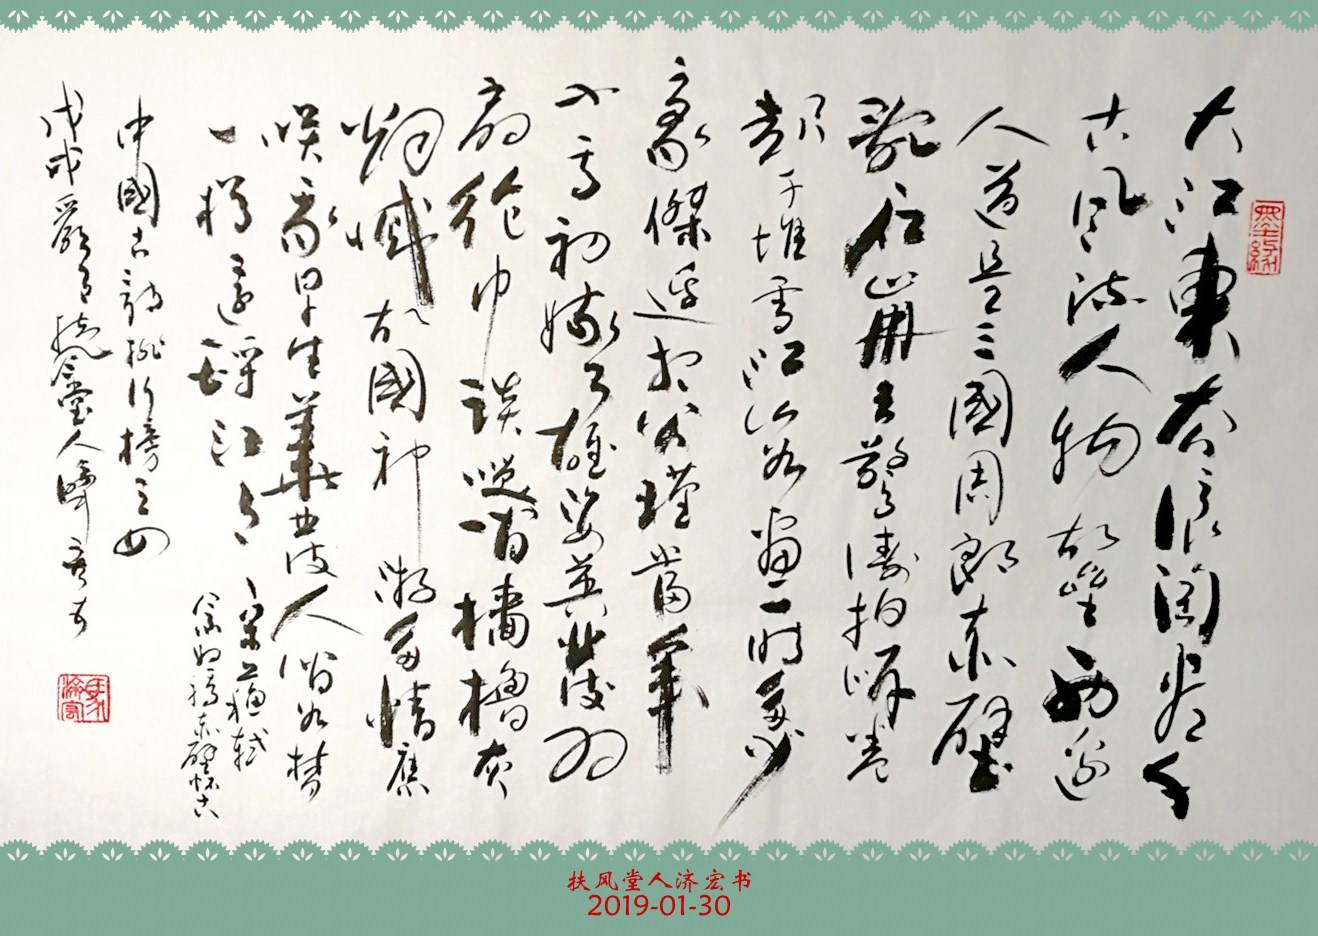 大江東去浪淘盡千
古風流人物故壘西邊
人道是三國周郎赤壁
亂石崩雲驚濤拍岸卷
起千堆雪江山如畫一時多少
豪傑遥想公瑾當年
小喬初嫁了雄姿英發羽
扇綸巾談咲間檣櫓灰
烟滅故國神游多情應
咲我早生華發人間如梦
一樽還酹江月宋蘇軾
念奴嬌赤壁怀古
中國古詩排行榜之
戊戌扶風堂人濟宏书
馬濟宏
扶风堂人济宏书
2019-01-30